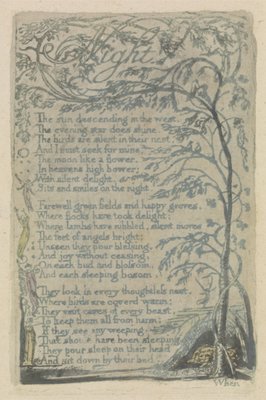 Night
The sun descending in the west.
The evening star does shine.
The birds are silent in their nest.
And I must seek for mine.
The moon like a flower.
In heavens high bower;
With silent delight,
Sits and smiles on the night.
Farewell green fields and happy groves,
Where flocks have took delight;
Where lambs have nibbled, silent moves
The feet of angels bright;
Unseen they pour blessing,
And joy without ceasing,
On each bud and blossom,
And each sleeping bosom.
They look in every thoughtless nest,
Where birds are coverd warm;
They visit caves of every beast,
To keep them all from harm;
If they see any weeping,
That should have been sleeping
They pour sleep on their head
And sit down by their bed.
When